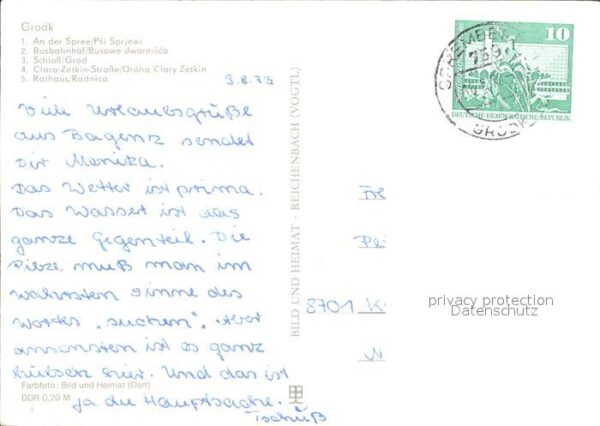 Grodk
1. An der Spree/Pśi Sprjewi
2. Busbahnhof/Busowe dwornišćo
3. Schloß/Grod
4. Clara-Zetkin-Straße/Droha Clary Zetkin
5. Rathaus/Radnica
3.8.79
Viele Urlaubsgrüße
aus Bagenz sendet
Dir Monika.
Das Wetter ist prima.
Das Wasser ist das
ganze Gegenteil. Die
Pilze muß man im
wahrsten Sinne des
Wortes „suchen". Aber
ansonsten ist es ganz
hübsch hier. Und das ist
ja die Hauptsache.
Tschüß
Farbfoto: Bild und Heimat (Darr)
DDR 0,20 M
BILD UND HEIMAT · REICHENBACH (VOGTL)
10
DEUTSCHE DEMOKRATISCHE REPUBLIK
GRODK
8701
privacy protection
Datenschutz